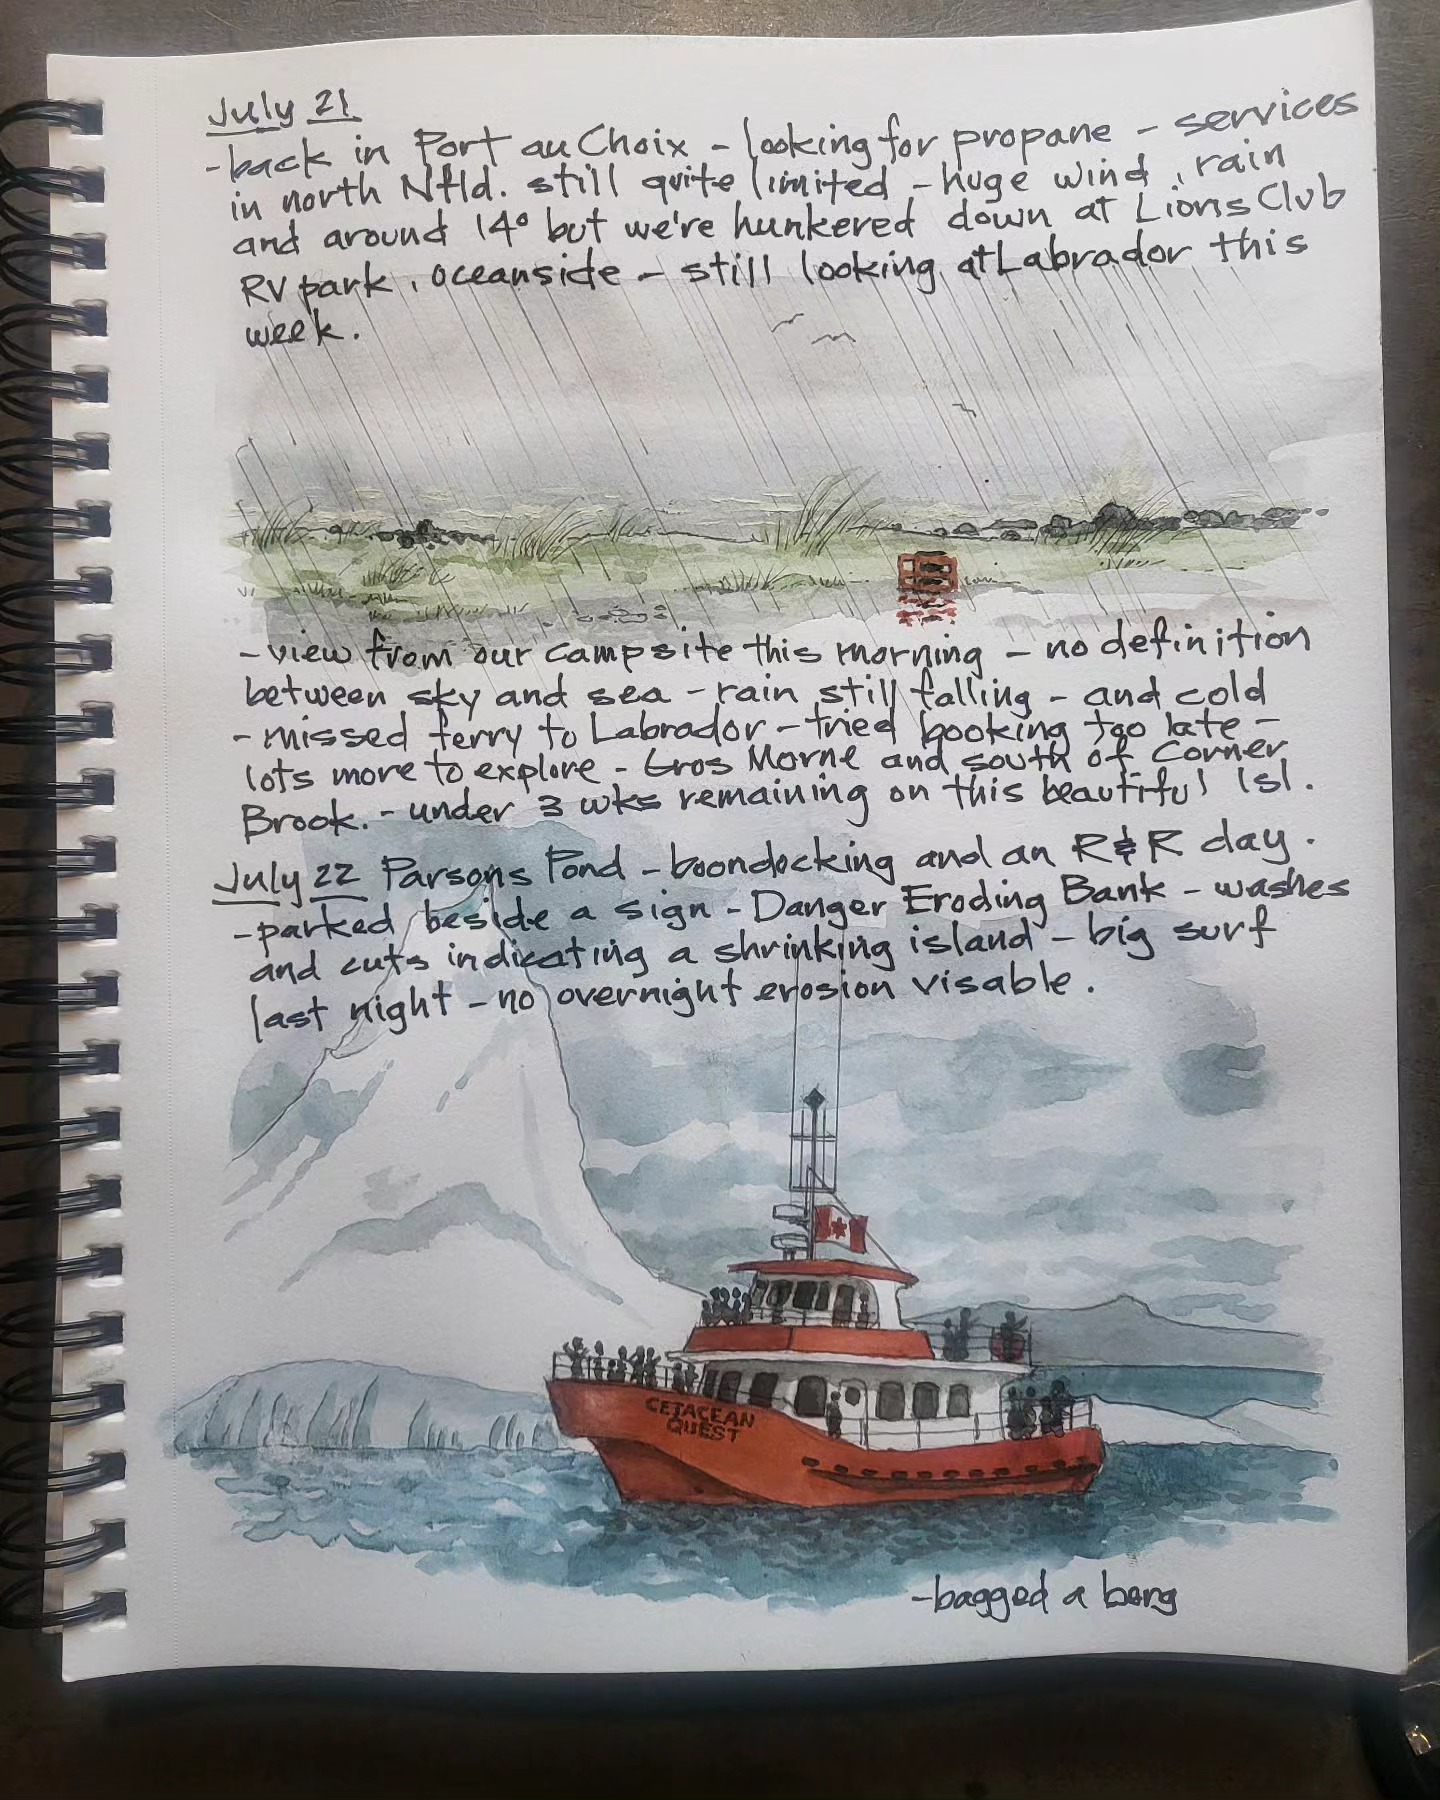 July 21
-back in Port au Choix - looking for propane - services
in north Nfld. still quite limited - huge wind, rain
and around 14° but we're hunkered down at Lions Club
RV park, oceanside - still looking at Labrador this
week.
-view from our campsite this morning - no definition
between sky and sea - rain still falling - and cold
-missed ferry to Labrador - tried booking too late -
lots more to explore - Gros Morne and south of Corner
Brook. - under 3 wks remaining on this beautiful Isl.
July 22 Parsons Pond - boondocking and an R&R day.
-parked beside a sign - Danger Eroding Bank - washes
and cuts indicating a shrinking island - big surf
last night - no overnight erosion visable.
CETACEAN
QUEST
-bagged a berg